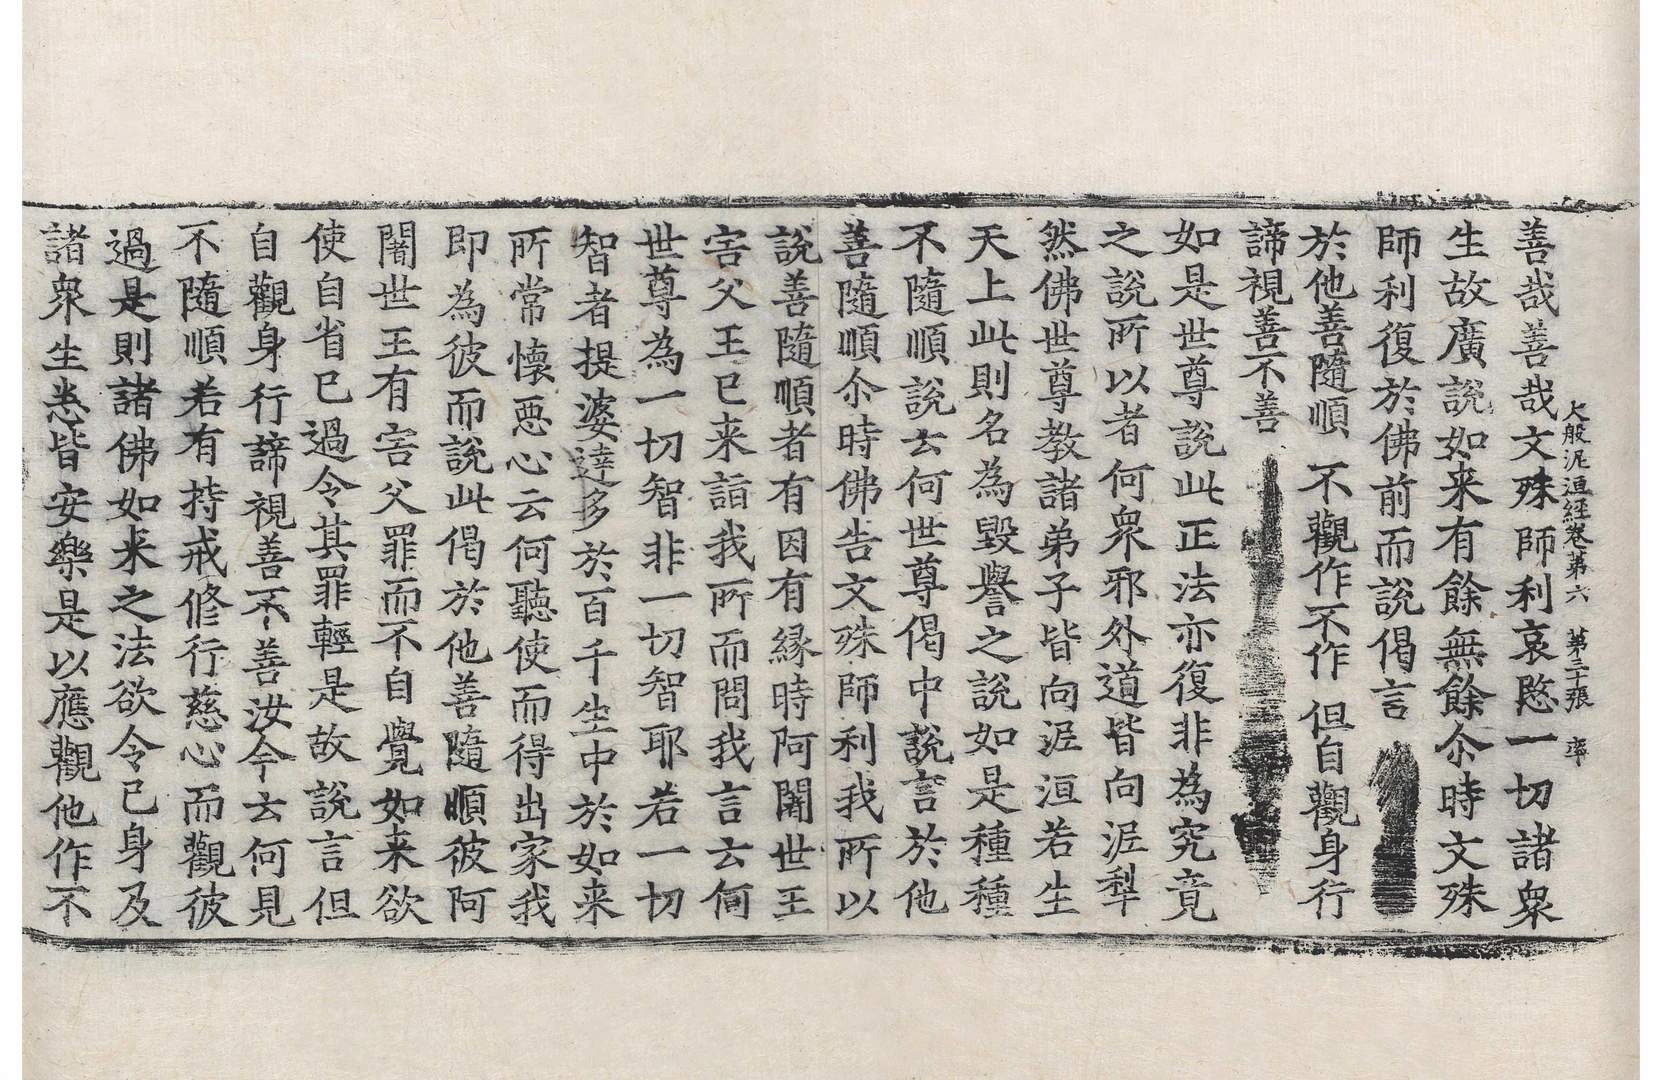 大般泥洹經卷第六 第三十張 率
善哉善哉文殊師利哀愍一切諸衆
生故廣說如来有餘無餘尒時文殊
師利復於佛前而說偈言
於他善隨順 不觀作不作 但自觀身行
諦視善不善
如是世尊說此正法亦復非為究竟
之說所以者何衆邪外道皆向泥犁
然佛世尊教諸弟子皆向泥洹若生
天上此則名為毀譽之說如是種種
不隨順說云何世尊偈中說言於他
善隨順尒時佛告文殊師利我所以
說善隨順者有因有縁時阿闍世王
害父王已来詣我所而問我言云何
世尊為一切智非一切智耶若一切
智者提婆達多於百千生中於如来
所常懷惡心云何聽使而得出家我
即為彼而說此偈於他善隨順彼阿
闍世王有害父罪而不自覺如来欲
使自省已過令其罪輕是故說言但
自觀身行諦視善不善汝今云何見
不隨順若有持戒修行慈心而觀彼
過是則諸佛如来之法欲令已身及
諸衆生悉皆安樂是以應觀他作不